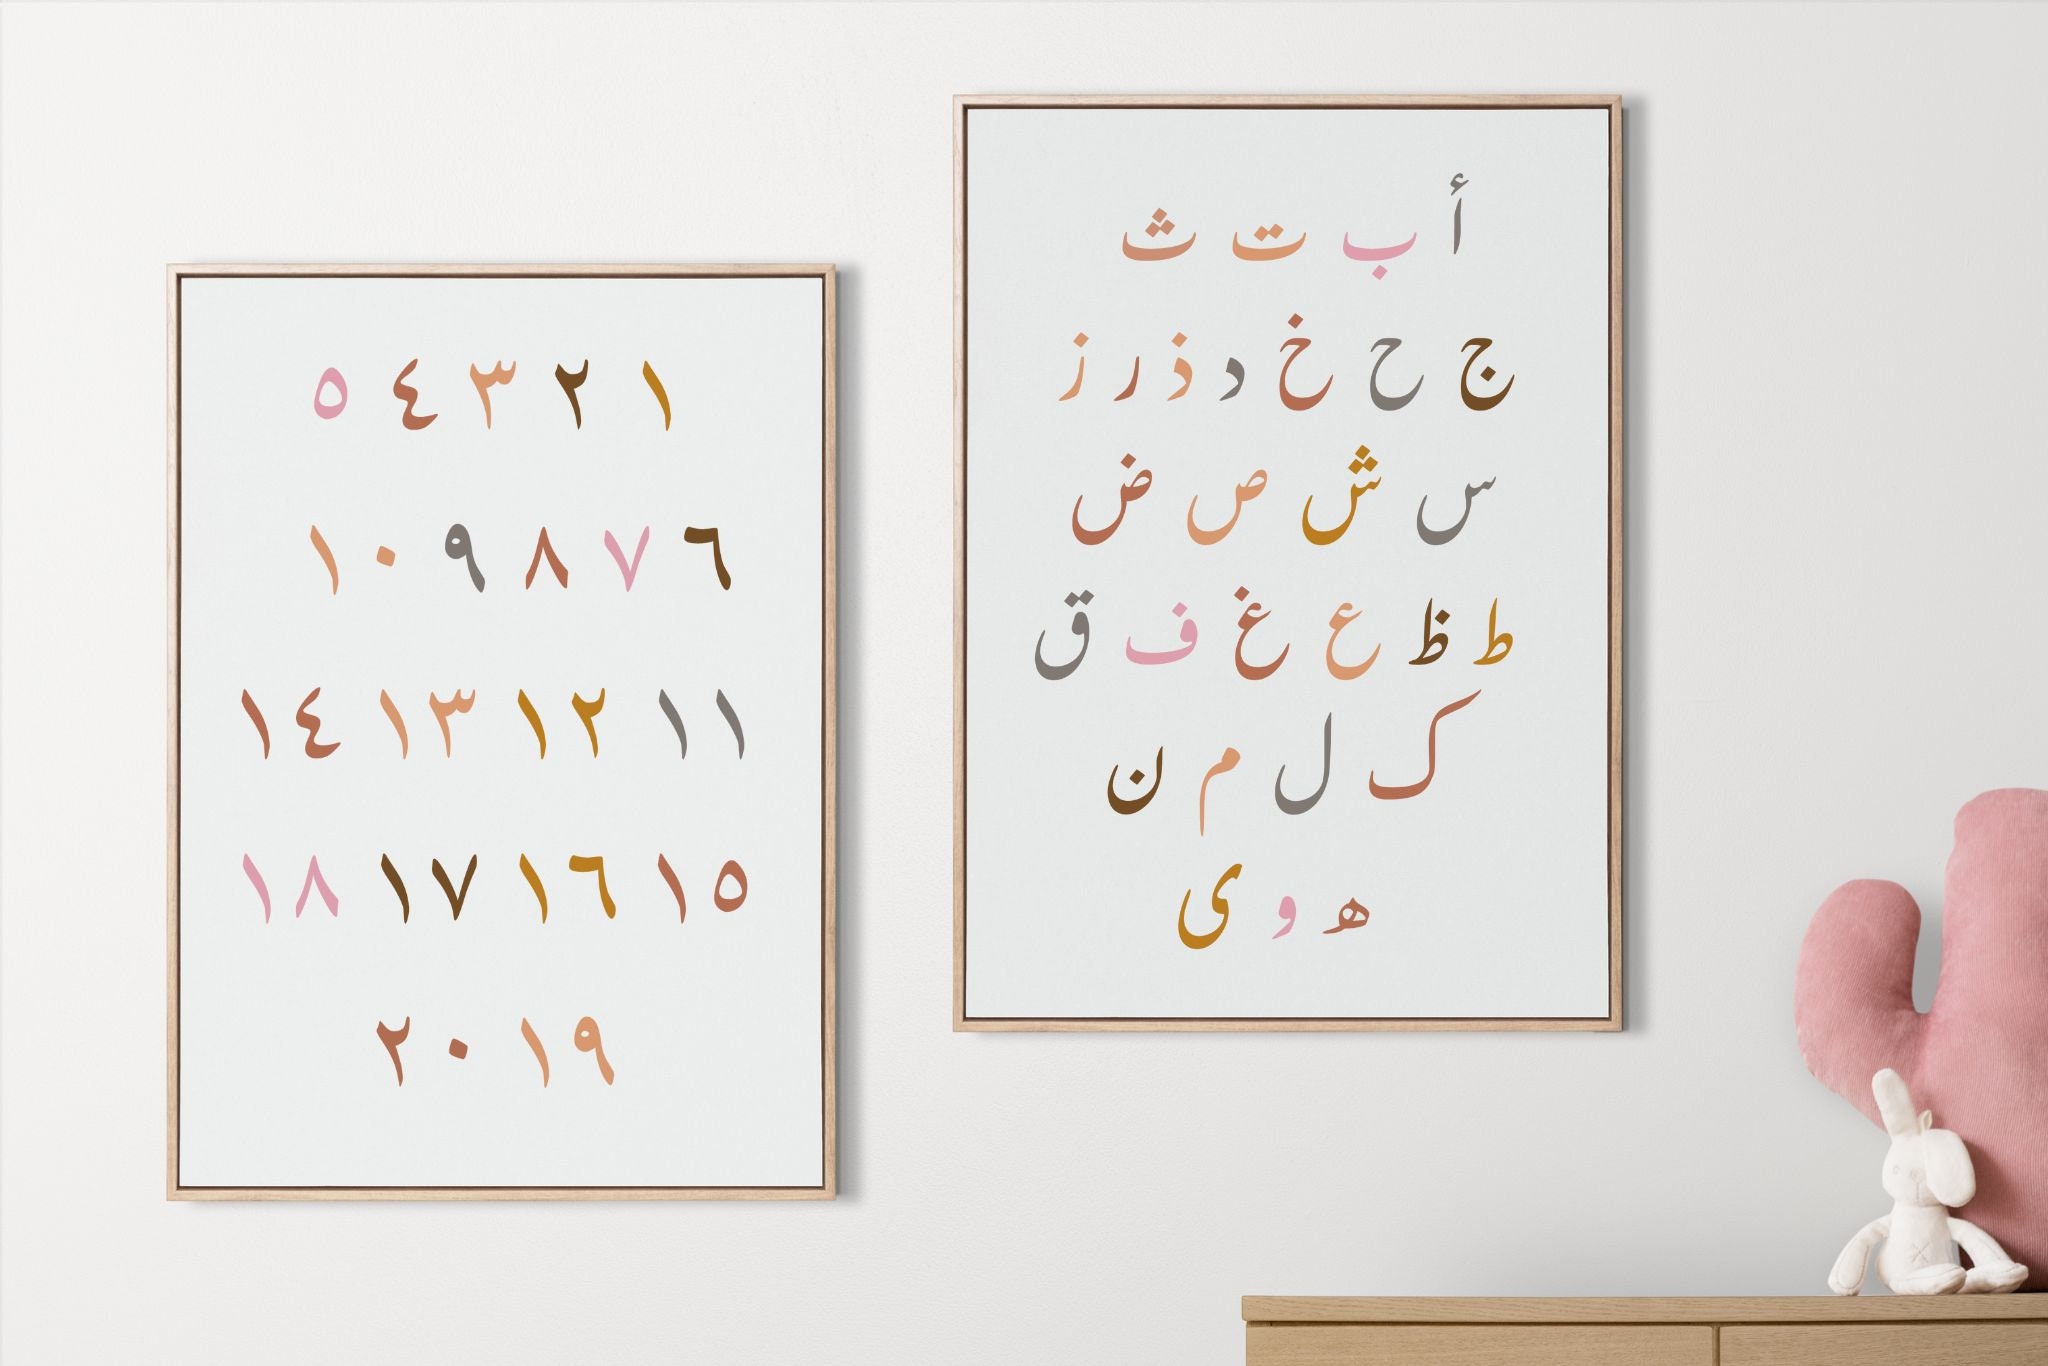 أ ب ت ث
ج ح خ د ذ ر ز
س ش ص ض
ط ظ ع غ ف ق
ک ل م ن
ه و ى
١ ٢ ٣ ٤ ٥
٦ ٧ ٨ ٩ ١٠
١١ ١٢ ١٣ ١٤
١٥ ١٦ ١٧ ١٨
١٩ ٢٠